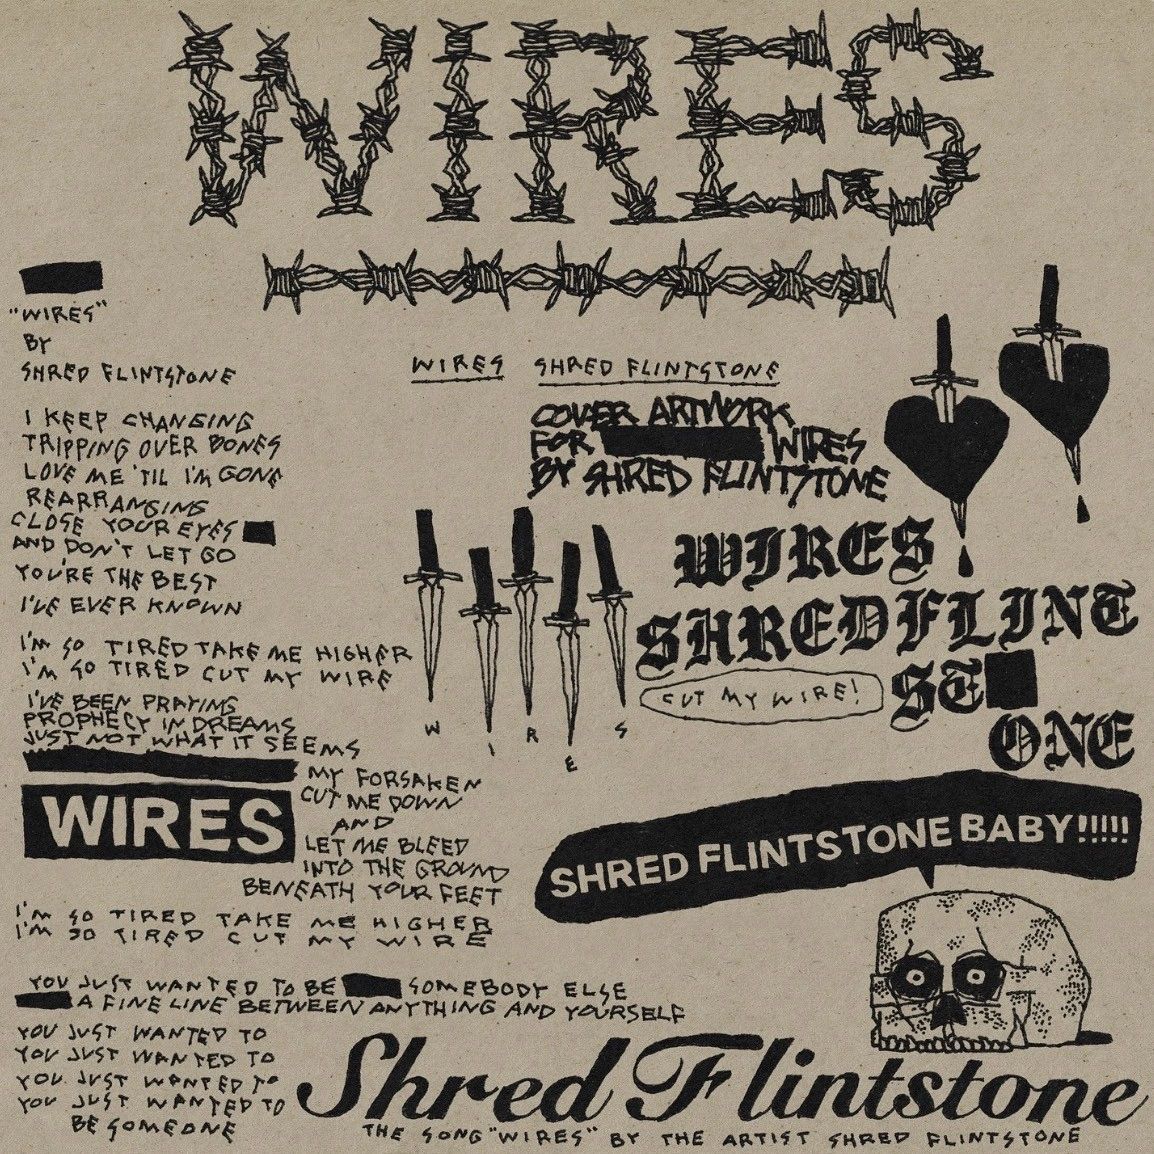 WIRES
"WIRES"
BY
SHRED FLINTSTONE
I KEEP CHANGING
TRIPPING OVER BONES
LOVE ME 'TIL I'M GONE
REARRANGING
CLOSE YOUR EYES
AND DON'T LET GO
YOU'RE THE BEST
I'VE EVER KNOWN
I'M SO TIRED TAKE ME HIGHER
I'M SO TIRED CUT MY WIRE
I'VE BEEN PRAYING
PROPHECY IN DREAMS
JUST NOT WHAT IT SEEMS
MY FORSAKEN
CUT ME DOWN
AND
LET ME BLEED
INTO THE GROUND
BENEATH YOUR FEET
WIRES
I'M SO TIRED TAKE ME HIGHER
I'M SO TIRED CUT MY WIRE
YOU JUST WANTED TO BE SOMEBODY ELSE
A FINE LINE BETWEEN ANYTHING AND YOURSELF
YOU JUST WANTED TO
YOU JUST WANTED TO
YOU JUST WANTED TO
YOU JUST WANTED TO
BE SOMEONE
WIRES SHRED FLINTSTONE
COVER ARTWORK
FOR WIRES
BY SHRED FLINTSTONE
WIRES
WIRES
SHRED FLINT
ST
ONE
CUT MY WIRE!
SHRED FLINTSTONE BABY!!!!!
Shred Flintstone
THE SONG "WIRES" BY THE ARTIST SHRED FLINTSTONE